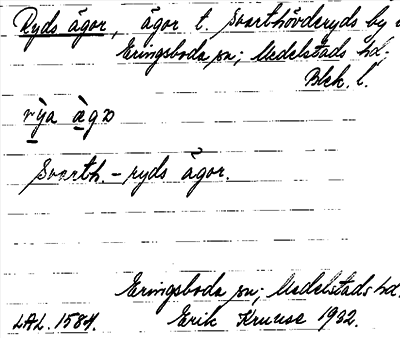 Ryds ägor, ägor t. Svarthövderyds by i
Eringsboda sn; Medelstads hd.
Blek. l.
rỳa æ̀gɔ
Svarth.-ryds ägor.
Eringsboda sn; Medelstads hd.
LAL. 1584. Erik Kruuse 1932.